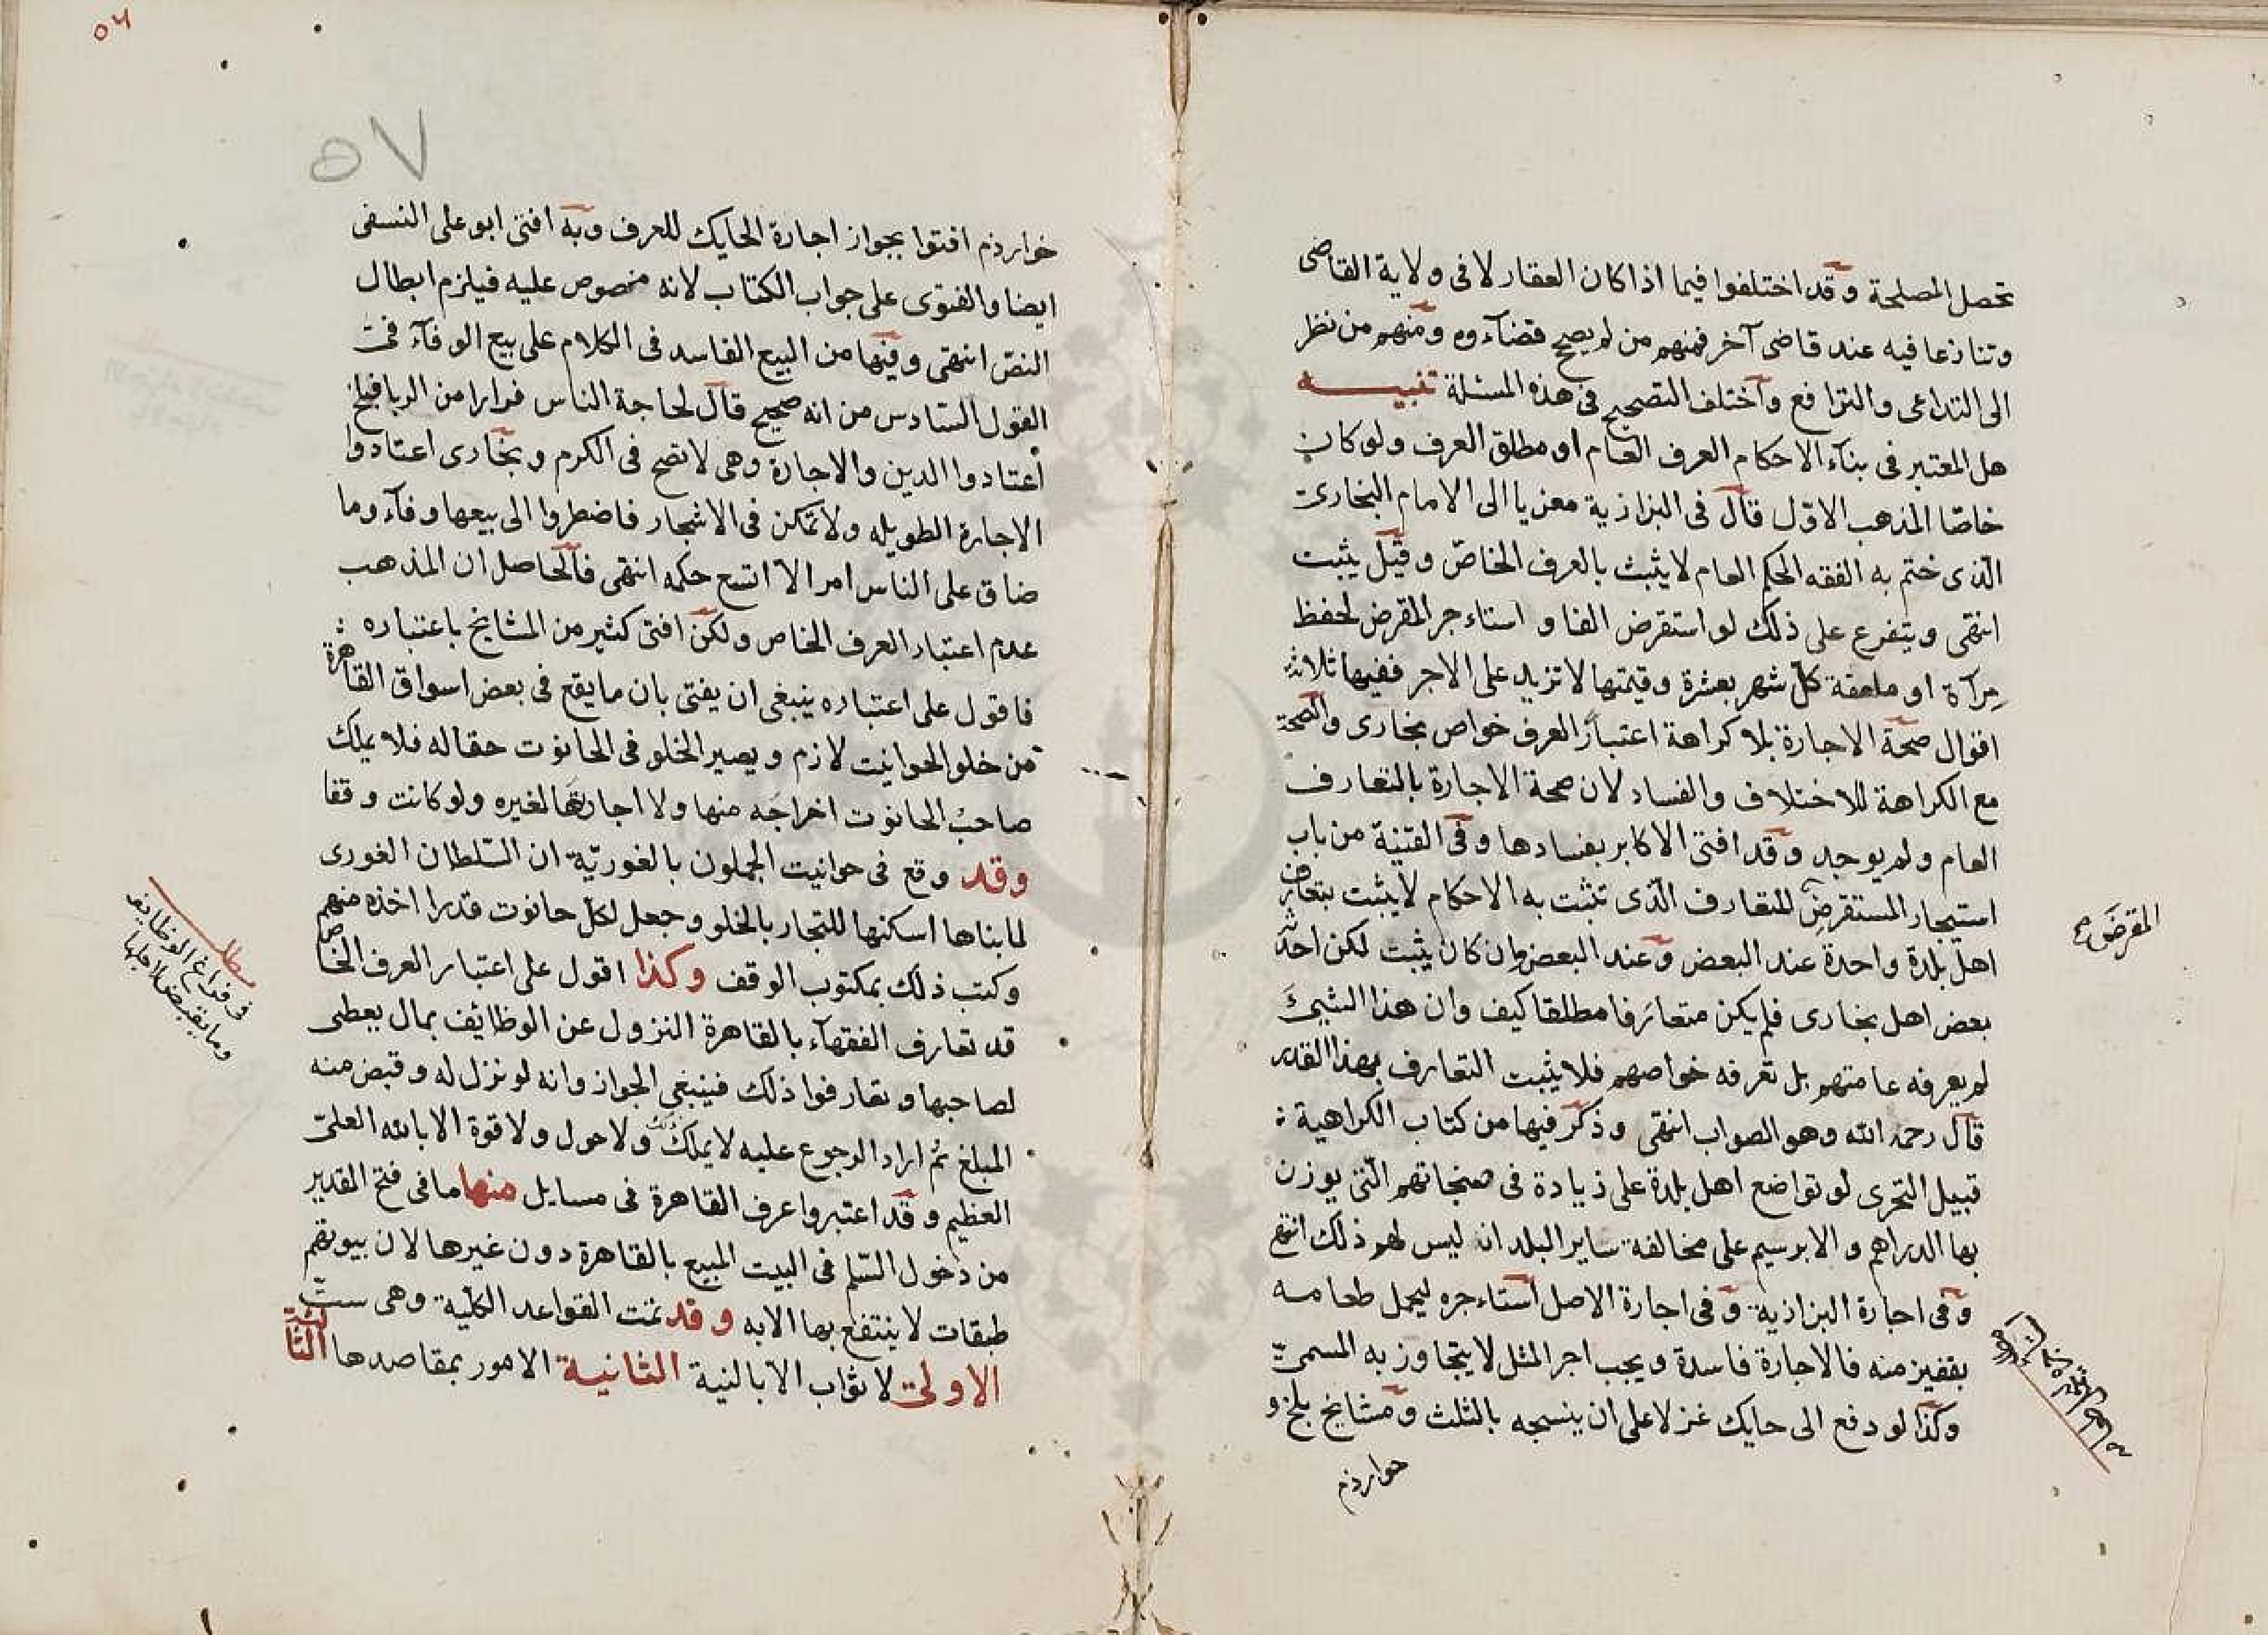 تحصل المصلحة وقد اختلفوا فيما اذا كان العقار لا فى ولاية القاضى
وتنازعا فيه عند قاضى آخر فمنهم من لم يصح قضآءه ومنهم من نظر
الى التداعى والترافع وآختلف التصحيح فى هذه المسئلة تنبيه
هل المعتبر فى بنآء الاحكام العرف العام او مطلق العرف ولو كان
خاصّا المذهب الاوّل قال فى البزازية معزيا الى الامام البخارى
الّذى ختم به الفقه الحكم العام لا يثبت بالعرف الخاصّ وقيل يثبت
انتهى ويتفرع على ذلك لو استقرض الفا و استاءجر المقرض لحفظ
مرآة او ملعقة كلّ شهر بعشرة وقيمتها لا تزيد على الاجر ففيها ثلاثة
اقوال صحّة الاجارة بلا كراهة اعتبارًا لعرف خواص بخارى والصّحة
مع الكراهة للاختلاف والفساد لان صحة الاجارة بالتعارف
العام ولم يوجد وقد افتى الاكابر بفسادها وفى القنية من باب
استيجار المستقرض للتعارف الّذى تثبت به الاحكام لا يثبت بتعارف
اهل بلدة واحدة عند البعض وعند البعض وان كان يثبت لكن احدثه
بعض اهل بخارى فلم يكن متعارفا مطلقا كيف وان هذا الشيئ
لم يعرفه عامتهم بل تعرفه خواصهم فلا يثبت التعارف بهذا القدر
قال رحمه الله وهو الصواب انتهى وذكر فيها من كتاب الكراهية
قبيل التحرى لو تواضع اهل بلدة على زيادة فى صنجاتهم الّتى يوزن
بها الدراهم و الابرسيم على مخالفة ساير البلدان ليس لهم ذلك انتهى
وفى اجارة البزازية وفى اجارة الاصل استاءجره ليحمل طعامه
بقفيز منه فالاجارة فاسدة ويجب اجر المثل لا يتجاوز به المسمىّ
وكذا لو دفع الى حايك غزلا على ان ينسجه بالثلث ومشايخ بلخ و
خوارزم
المقرض
٥٦
٥٧
خوارزم افتوا بجواز اجارة الحايك للعرف وبه افتى ابو على النسفى
ايضا والفتوى على جواب الكتاب لانه منصوص عليه فيلزم ابطال
النصّ انتهى وفيها من البيع الفاسد فى الكلام على بيع الوفآء فى
القول السّادس من انه صحيح قال لحاجة الناس فرارا من الربا فبلخ
اعتادوا الدين والاجارة وهى لا تصح فى الكرم وبخارى اعتادوا
الاجارة الطويله ولا تمكن فى الاشجار فاضطروا الى بيعها وفآء وما
ضاق على الناس امر الا اتسع حكمه انتهى فالحاصل ان المذهب
عدم اعتبار العرف الخاص ولكن افتى كثير من المشايخ باعتباره
فاقول على اعتباره ينبغى ان يفتى بان ما يقع فى بعض اسواق القاهرة
من خلو الحوانيت لازم ويصير الخلو فى الحانوت حقا له فلا يملك
صاحب الحانوت اخراجه منها ولا اجارتها لغيره ولو كانت وقفا
وقد وقع فى حوانيت الجملون بالغوريّة ان السّلطان الغورى
لما بناها اسكنها للتجار بالخلو وجعل لكلّ حانوت قدرا اخذه منهم
وكتب ذلك بمكتوب الوقف وكذا اقول على اعتبار العرف الخاص
قد تعارف الفقهآء بالقاهرة النزول عن الوظائف بمال يعطى
لصاحبها وتعارفوا ذلك فينبغى الجواز وانه لو نزل له وقبض منه
المبلغ ثم اراد الرجوع عليه لا يملك ولا حول ولا قوة الا بالله العلىّ
العظيم وقد اعتبروا عرف القاهرة فى مسايل منها ما فى فتح القدير
من دخول السّلم فى البيت المبيع بالقاهرة دون غيرها لان بيوتهم
طبقات لا ينتفع بها الا به وقد تمّت القواعد الكلّية وهى ستّ
الاولى لا ثواب الا بالنية الثانية الامور بمقاصدها الثالثة
مطلب
فى فراغ الوظايف
وما يقبض لاجلها